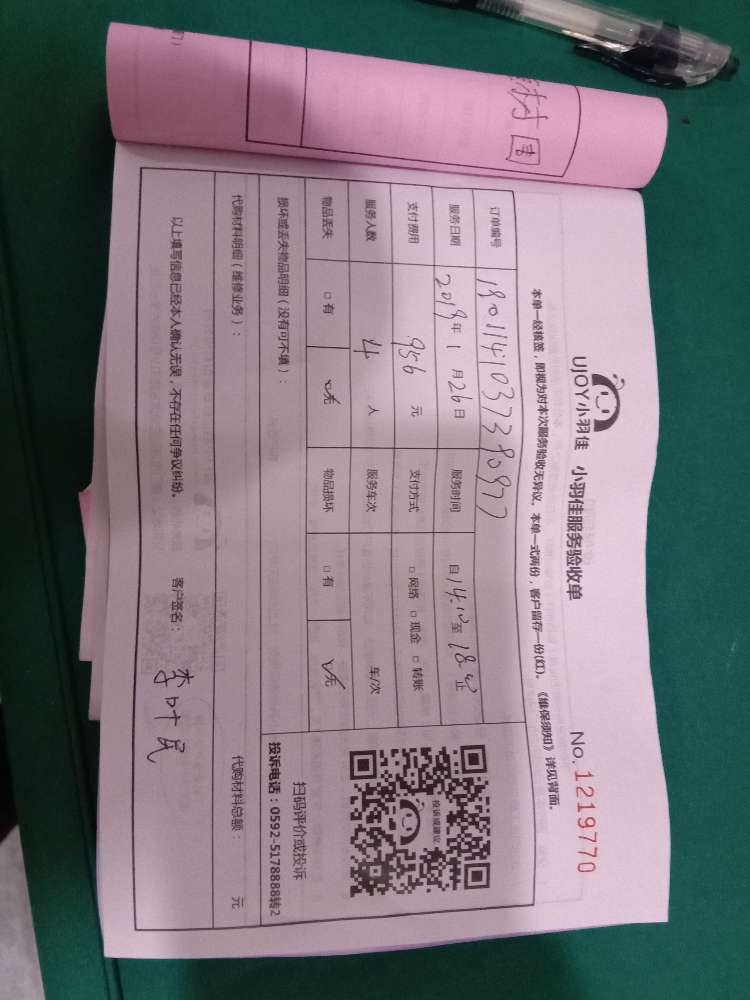 UJOY小羽佳 小羽佳服务验收单
No.1219770
本单一经核签，即视为对本次服务验收无异议。本单一式两份，客户留存一份(红)。《维保须知》详见背面。
订单编号
服务日期 年1月26日 服务时间 自 至 止
支付费用 956元 支付方式 □网络 □现金 □转账
服务人数 4人 服务车次 车/次
物品丢失 □有 □无 物品损坏 □有 □无
损坏或丢失物品明细（没有可不填）：
投诉或建议
扫码评价或投诉
投诉电话：0592-5178888转2
代购材料明细（维修业务）： 代购材料总额： 元
以上填写信息已经本人确认无误，不存在任何争议纠纷。 客户签名：